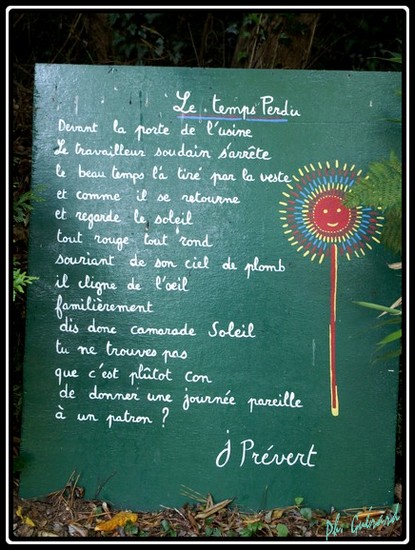 Le temps Perdu
Devant la porte de l'usine
Le travailleur soudain s'arrête
le beau temps l'a tiré par la veste
et comme il se retourne
et regarde le soleil
tout rouge tout rond
souriant de son ciel de plomb
il cligne de l'œil
familièrement
dis donc camarade Soleil
tu ne trouves pas
que c'est plûtot con
de donner une journée pareille
à un patron ?
J Prévert
Ph. Guérard